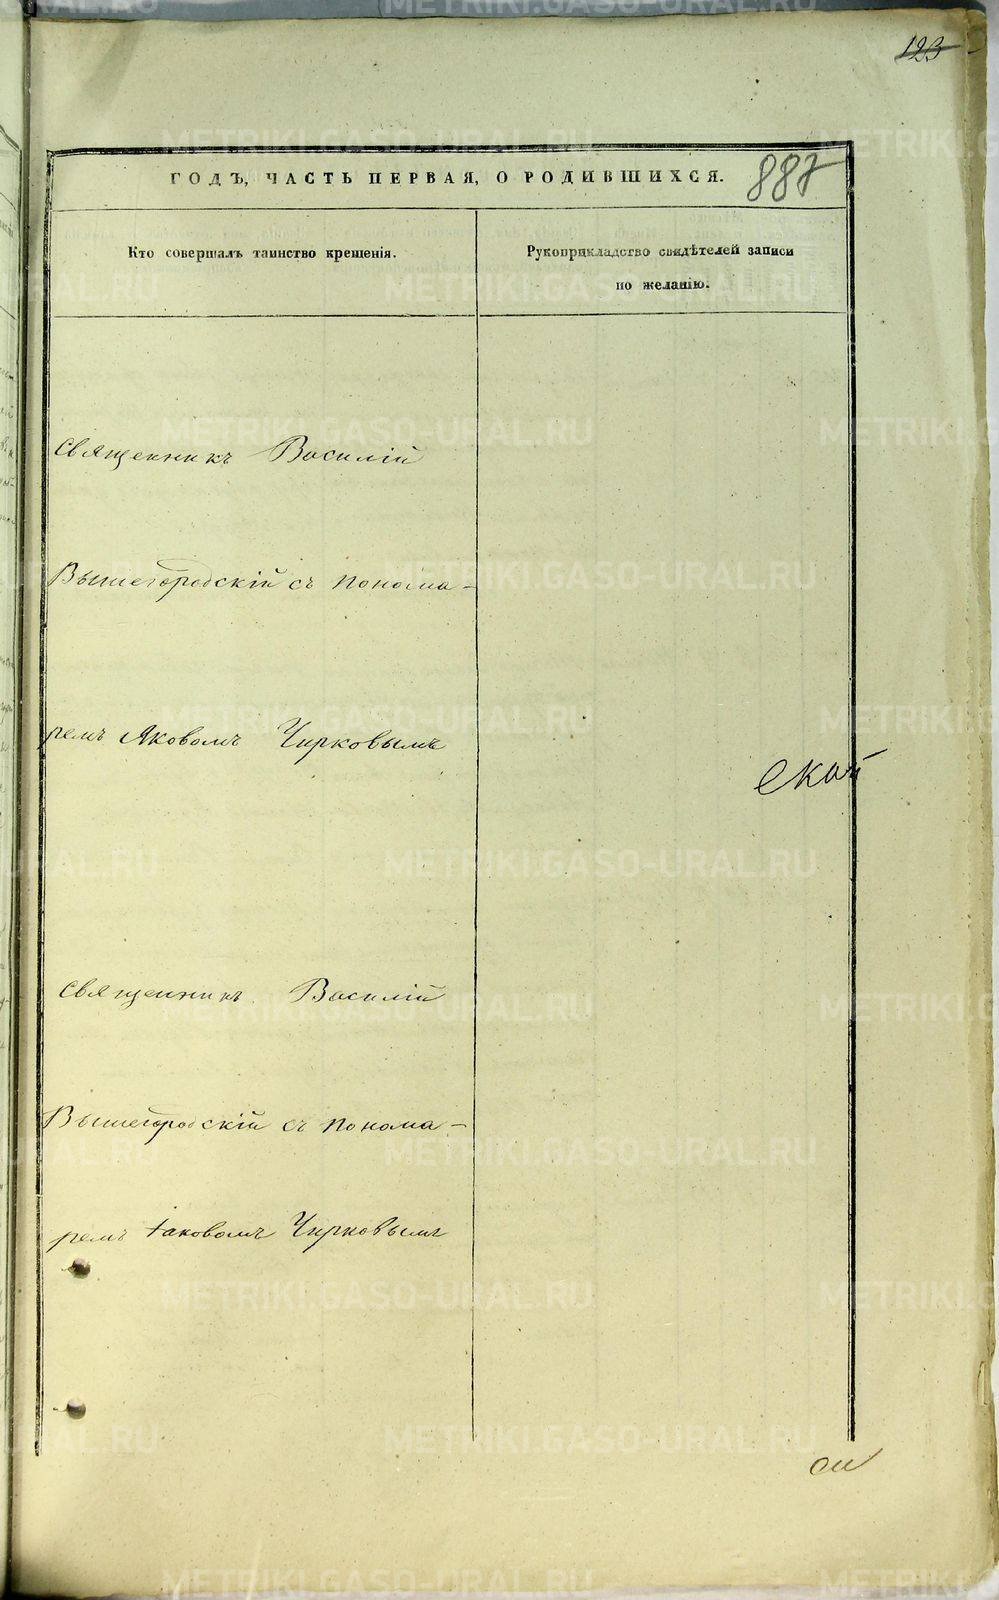 123
ГОДЪ, ЧАСТЬ ПЕРВАЯ, О РОДИВШИХСЯ.
887
Кто совершалъ таинство крещенія.
Рукоприкладство свидѣтелей записи
по желанію.
Священникъ Василій
Вышегородскій съ понома-
ремъ Яковомъ Чирковымъ
ской
Священникъ Василій
Вышегородскій съ понома-
ремъ Іаковомъ Чирковымъ
METRIKI.GASO-URAL.RU